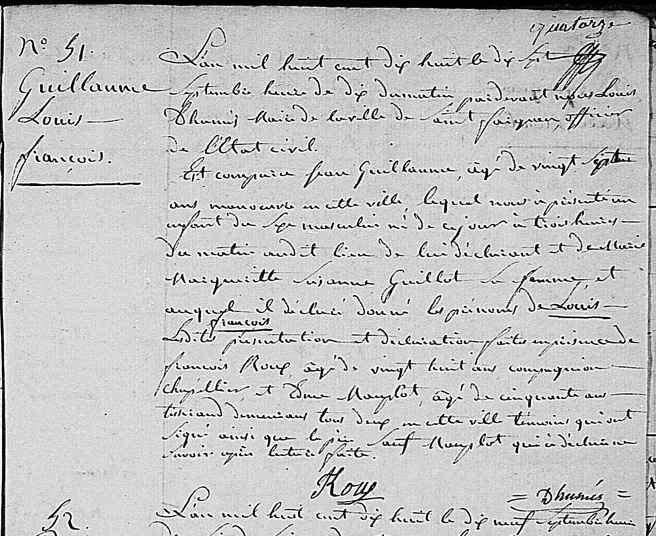 quatorze
N° 51.
Guillaume
Louis
françois.
L'an mil huit cent dix huit le dix Sept
Septembre heure de dix du matin, pardevant nous Louis
Dhumés Maire de la ville de Saint fargeau, officier
de l'Etat civil.
Est comparu Jean Guillaume, agé de vingt Sept
ans manoeuvre en cette ville, lequel nous a présenté un
enfant du Sexe masculin né de ce jour à trois heures
du matin audit lieu de lui déclarant et de Marie
Marguerite Susanne Guillot Sa femme, et
auquel il a déclaré donner les prénoms de Louis
françois
Lesdites présentation et déclaration faites en présence de
françois Roux, agé de vingt huit ans, compagnon
chapellier, et Edme Mauplot, agé de cinquante ans
tisserand demeurans tous deux en cette ville témoins qui ont
Signé ainsi que le père Sauf Mauplot qui a déclaré ne
savoir après lecture faite.
Roux
= Dhumés =
52.
L'an mil huit cent dix huit le dix neuf Septembre heure